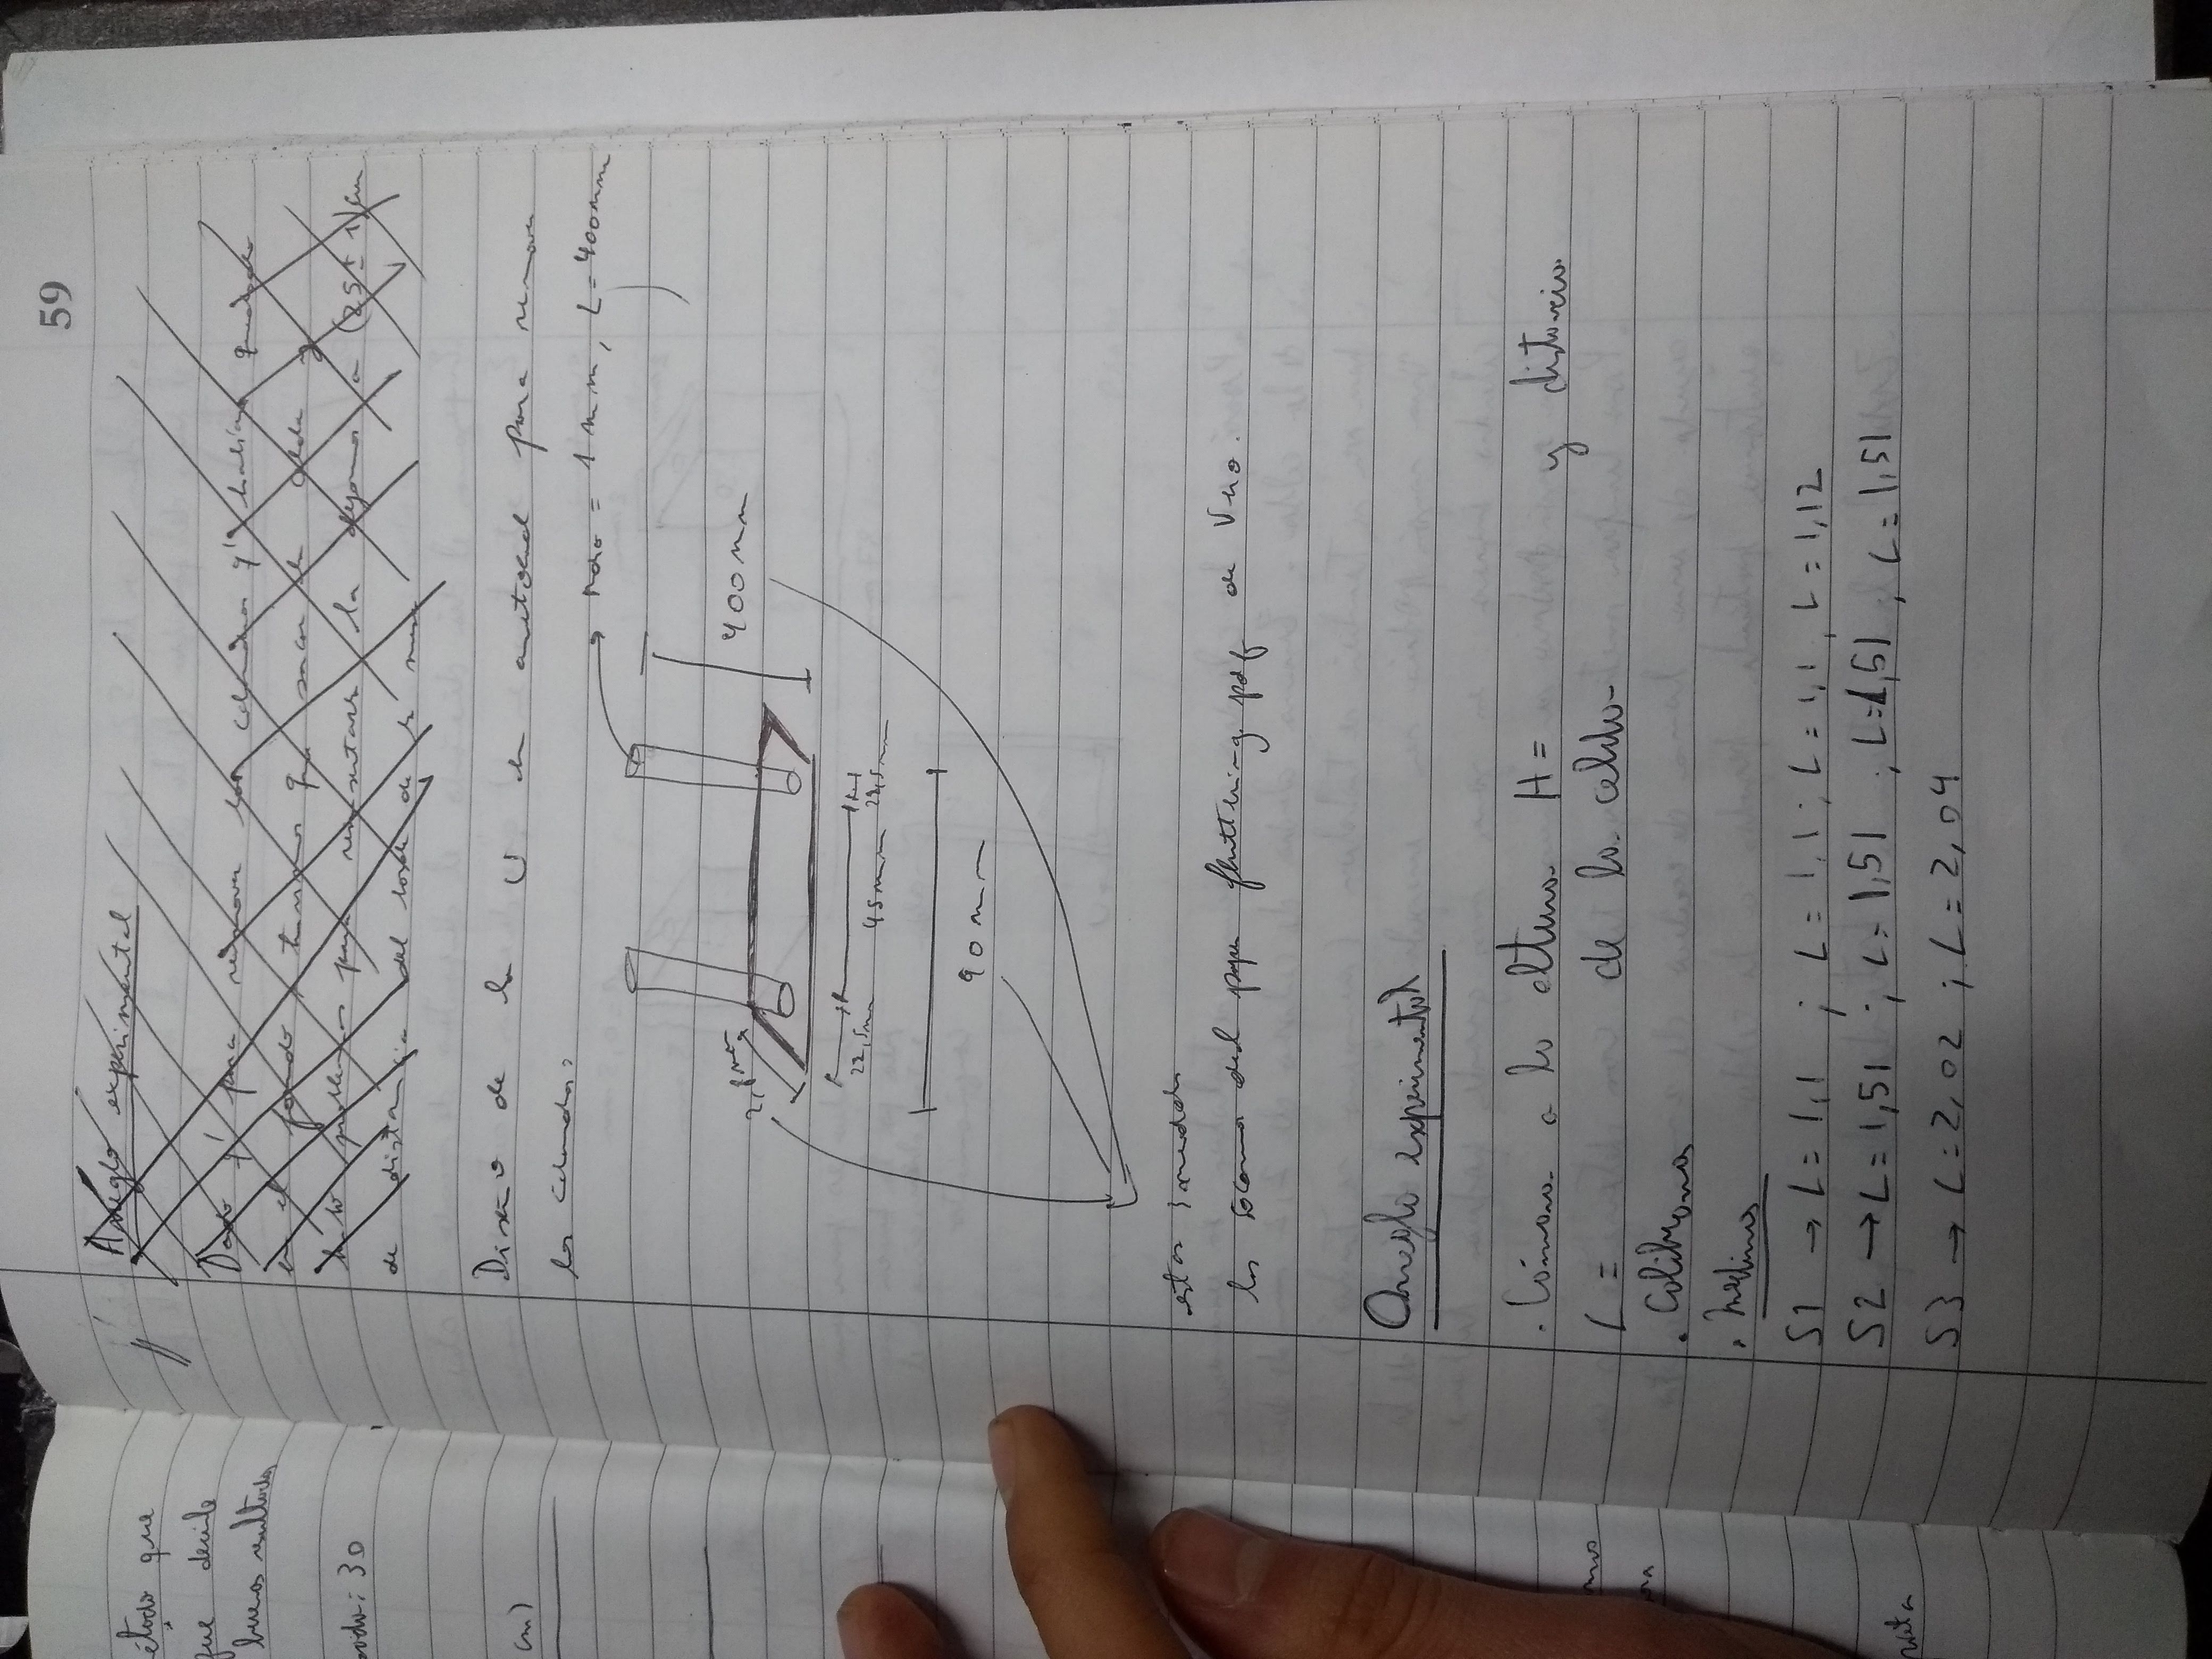 59
étodo que
que decirle
buenos resultados
: 30
cm)
mos
ora
Arreglo experimental
Dado q' para remover los cilindros q' habían quedado
en el fondo tuvimos que sacar la celda y
hubo problemas para la dejamos a (25 ± 1) cm
de distancia del borde de la mesa
Diseño de la U en autocad para remover
los cilindros:
radio = 1 mm, L = 400mm
400 mm
2,8 mm
22,5mm 45mm 22,5mm
90 mm
estas 3 medidas
las sacamos del paper fluttering.pdf de Vero.
Arreglo experimental
. Cámara a la altura H = y distancia
L = de la celda
. Calibramos
. Medimos
S1 → L = 1,1 ; L = 1,1 ; L = 1,1 , L = 1,12
S2 → L = 1,51 ; L = 1,51 ; L = 1,51 , L = 1,51
S3 → L = 2,02 ; L = 2,04